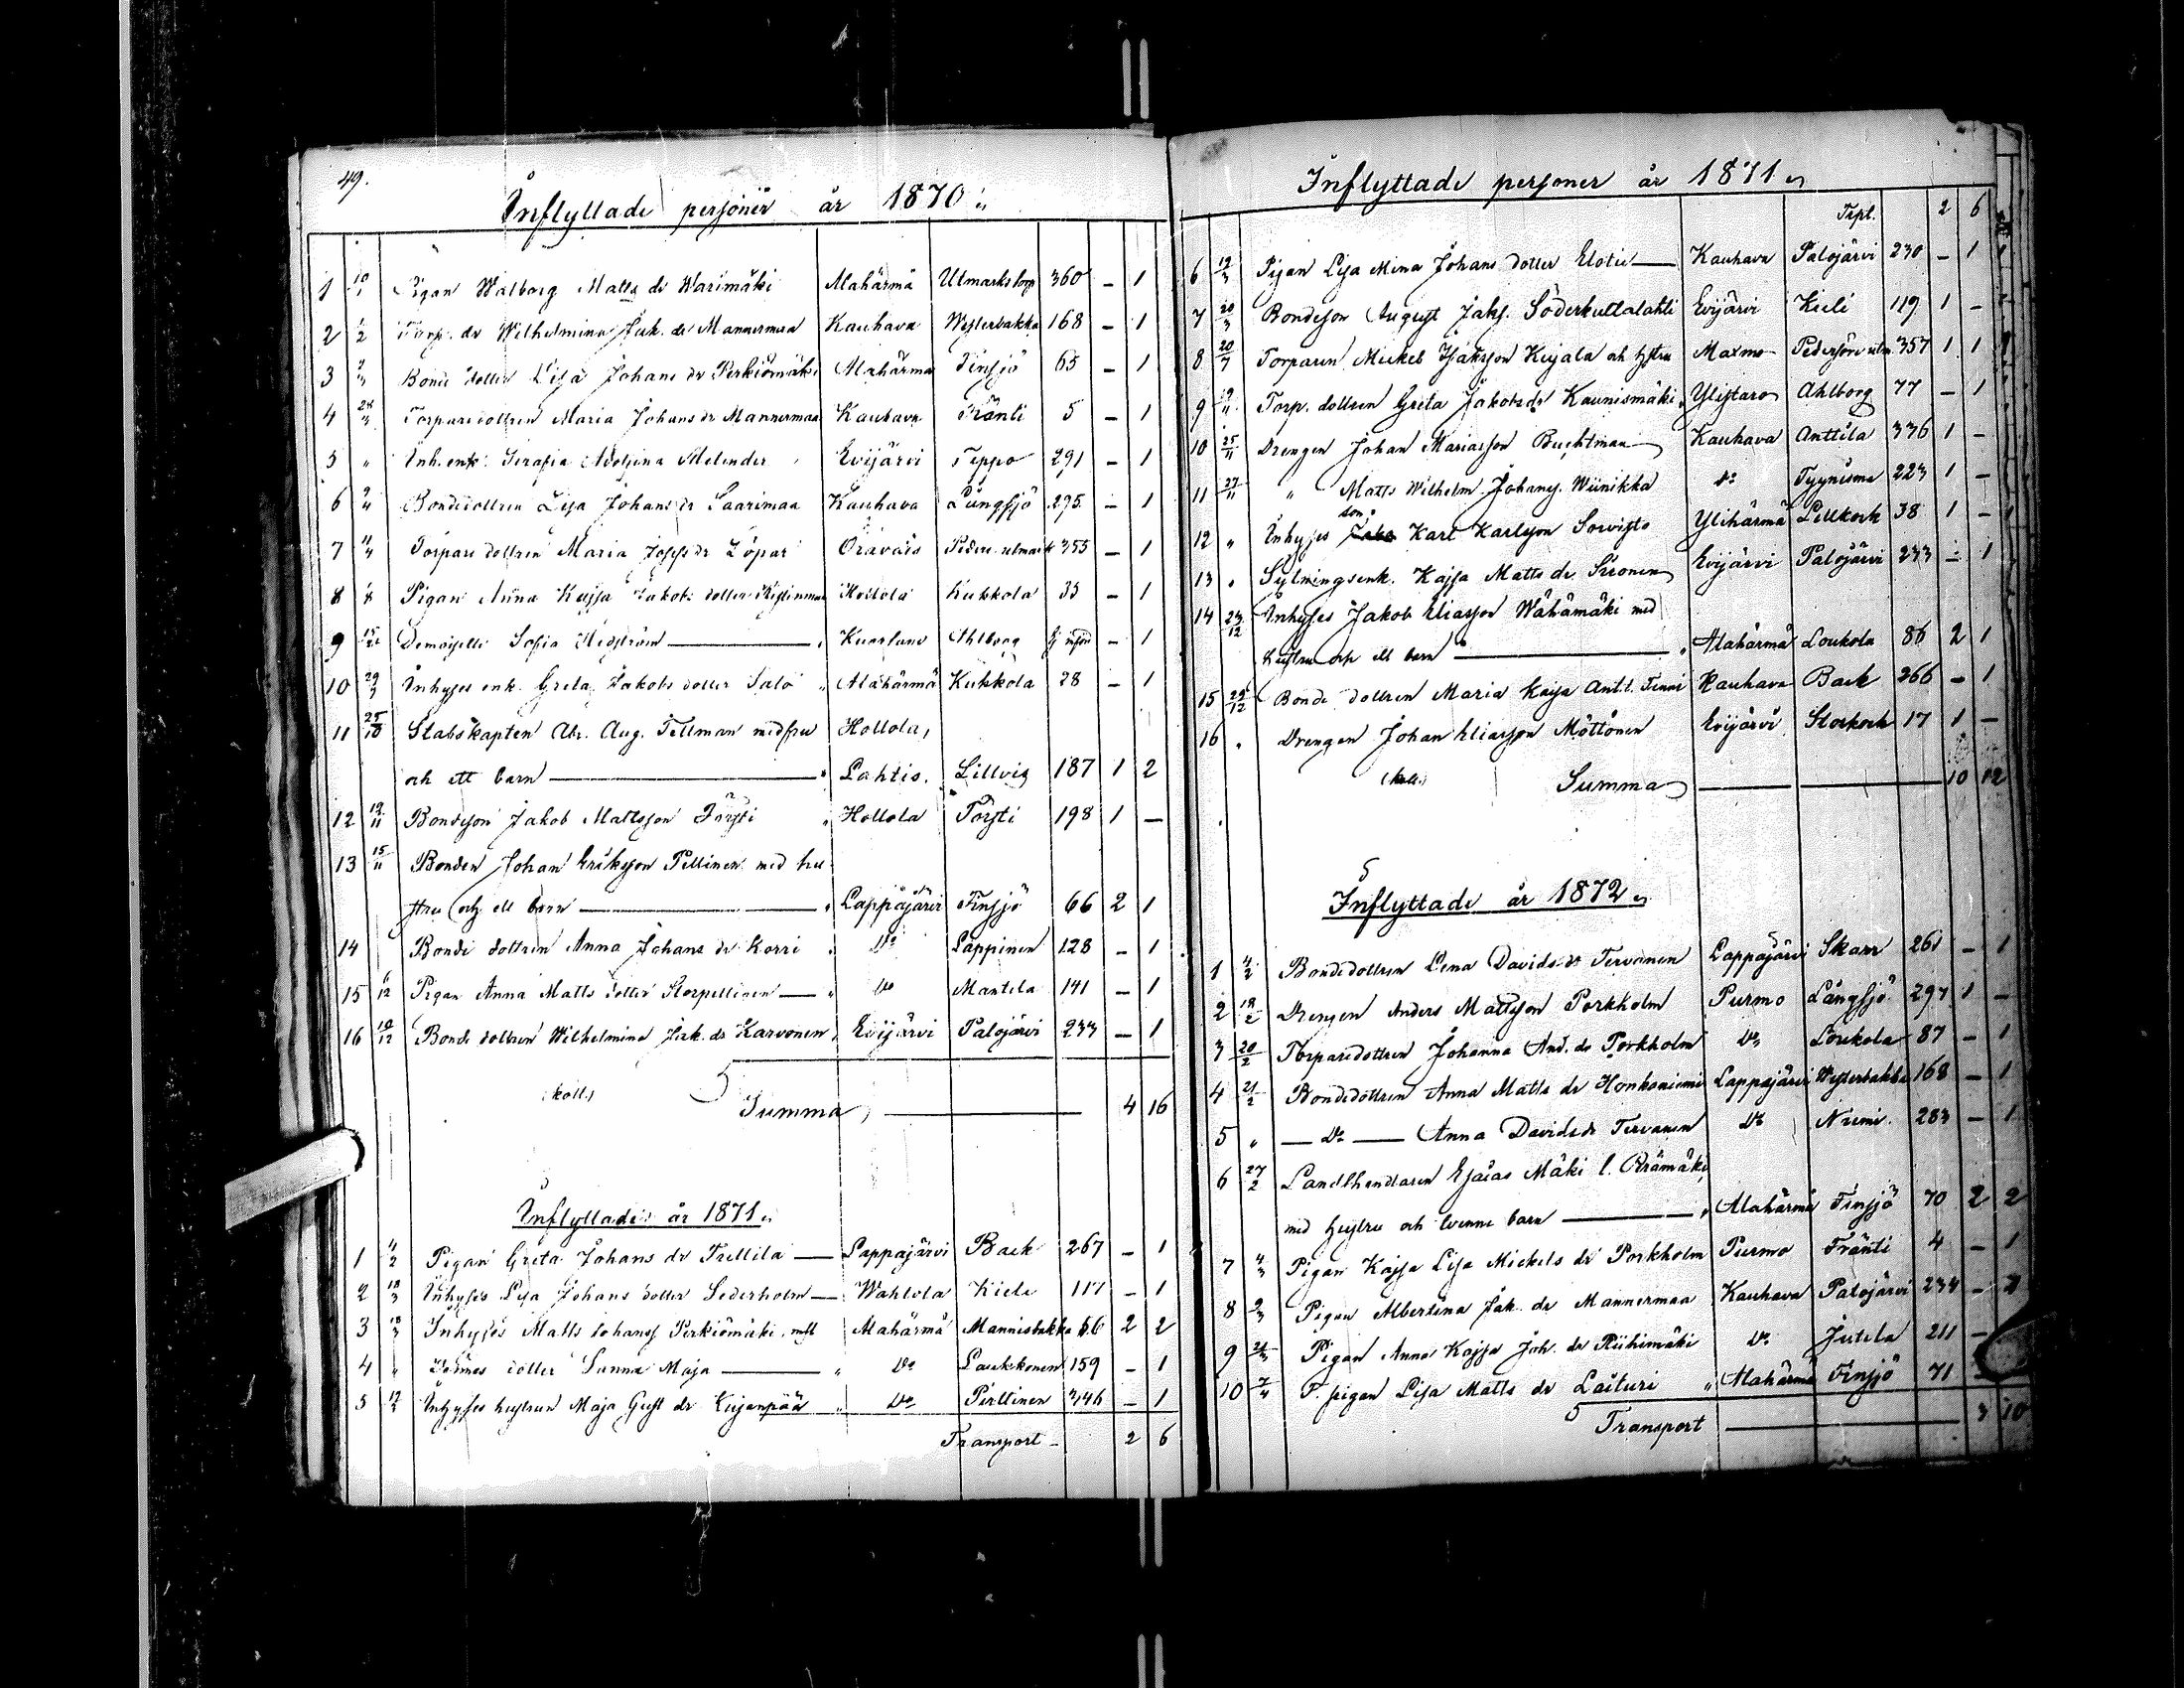 49.
Inflyttade personer år 1870
1 10/1 Pigan Walborg Matts dr Warimäki Alahärmä Utmarkstorp 360 – 1
2 1/2 Torp. dr Wilhelmina Jak. dr Mannermaa Kauhava Westerbakka 168 – 1
3 2/3 Bonde dotter Lisa Johans dr Perkiömäki Alahärmä Finsjö 65 – 1
4 28/3 Torparedottren Maria Johans dr Mannermaa Kauhava Fränti 5 – 1
5 " Inh. enk. Serafia Melender Evijärvi Teppo 291 – 1
6 2/4 Bondedottren Lisa Johans dr Saarimaa Kauhava Långsjö 295 – 1
7 11/4 Torpare dottren Maria Josefs dr Löpar Oravais Peders. utmark 355 – 1
8 Pigan Anna Kajsa Jakobs dotter Hollola Kukkola 35 – 1
9 Demoiselle Sofia Hedström — Ahlborg – 1
10 29/9 Inhyses enk. Greta Jakobs dotter Salo Alahärmä Kukkola 28 – 1
11 25/10 Stabskapten Abr. Aug. Tellman med fru Hollola,
och ett barn — Lahtis. Lillvig 187 1 2
12 12/11 Bondeson Jakob Mattsson Törsti Hollola Törsti 198 1 –
13 15/11 Bonden Johan Eriksson Pellinen med hu-
stru och ett barn — Lappajärvi Finsjö 66 2 1
14 Bonde dottren Anna Johans dr Korri Do Lappinen 128 – 1
15 6/12 Pigan Anna Matts dotter Storpellinen — Do Mantela 141 – 1
16 12/12 Bonde dottren Wilhelmina Jak. dr Karvonen Evijärvi Palojärvi 233 – 1
(koll.) Summa, — 4 16
Inflyttade år 1871
1 4/2 Pigan Greta Johans dr Trellilä — Lappajärvi Back 267 – 1
2 18/3 Inhyses Lisa Johans dotter Sederholm — Wahlola Kiele 117 – 1
3 18/3 Inhyses Matts Johanss Perkiömäki Alahärmä Mannisbakka 56 2 2
4 " Dennes dotter Sanna Maja — " Do Laukkonen 159 – 1
5 12/2 Inhyses hustrun Maja Gust dr Kujanpää " Do Pirttinen 346 – 1
Transport – 2 6
Inflyttade personer år 1871
Trpt. 2 6
6 19/3 Pigan Lisa Mina Johans dotter Elotie — Kauhava Palojärvi 230 – 1
7 20/3 Bondeson August Jakss. Söderkultalahti Evijärvi Kieli 119 1 –
8 20/7 Torparen Mickel Isaksson Kujala och hstru Maxmo Pedersöre utm 357 1 1
9 19/11 Torp. dottren Greta Jakobs dr Kaunismäki Ylistaro Ahlborg 77 – 1
10 25/11 Drengen Johan Mariasson Buchtman Kauhava Anttila 336 1 –
11 27/11 " Matts Wilhelm Johanss. Wiinikka Do Tyynisma 223 1 –
12 " Inhyses son Karl Karlsson Sorvisto Ylihärmä Lillkock 38 1 –
13 " Sytningsenk. Kajsa Matts dr Sironen Evijärvi Palojärvi 233 – 1
14 23/12 Inhyses Jakob Eliasson Wähämäki med
hustru och ett barn — Alahärmä Loukola 86 2 1
15 29/12 Bonde dottren Maria Kajsa Kauhava Back 266 – 1
16 " Drengen Johan Eliasson Möttönen Evijärvi Storkock 17 1 –
(koll.) Summa — 10 12
Inflyttade år 1872
1 4/2 Bondedottren Lena Davids dr Tervonen Lappajärvi Skarr 261 – 1
2 18/2 Drengen Anders Mattsson Porkholm Purmo Långsjö 297 1 –
3 20/2 Torparedottren Johanna And. dr Porkholm Do Loukola 87 – 1
4 21/2 Bondedottren Anna Matts dr Honkaniemi Lappajärvi Westerbakka 168 – 1
5 " — Do — Anna Davids dr Tervonen Do Niemi 283 – 1
6 27/2 Landthandlaren Esaias Mäki l. Rämäki,
med hustru och tvenne barn — Alahärmä Finsjö 70 2 2
7 4/3 Pigan Kajsa Lisa Mickels dr Porkholm Purmo Fränti 4 – 1
8 9/3 Pigan Albertina Jak. dr Mannermaa Kauhava Palojärvi 234 – 1
9 21/3 Pigan Anna Kajsa Joh. dr Riihimäki Do Jutila 211 –
10 7/4 T. pigan Lisa Matts dr Laituri " Alahärmä Finsjö 71
Transport — 3 10